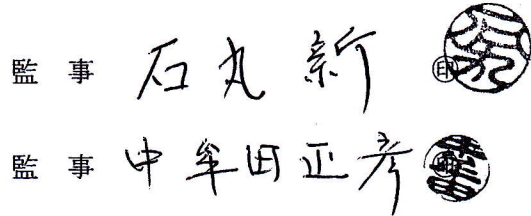 監事 石丸新 ㊞
監事 中牟田正彦 ㊞